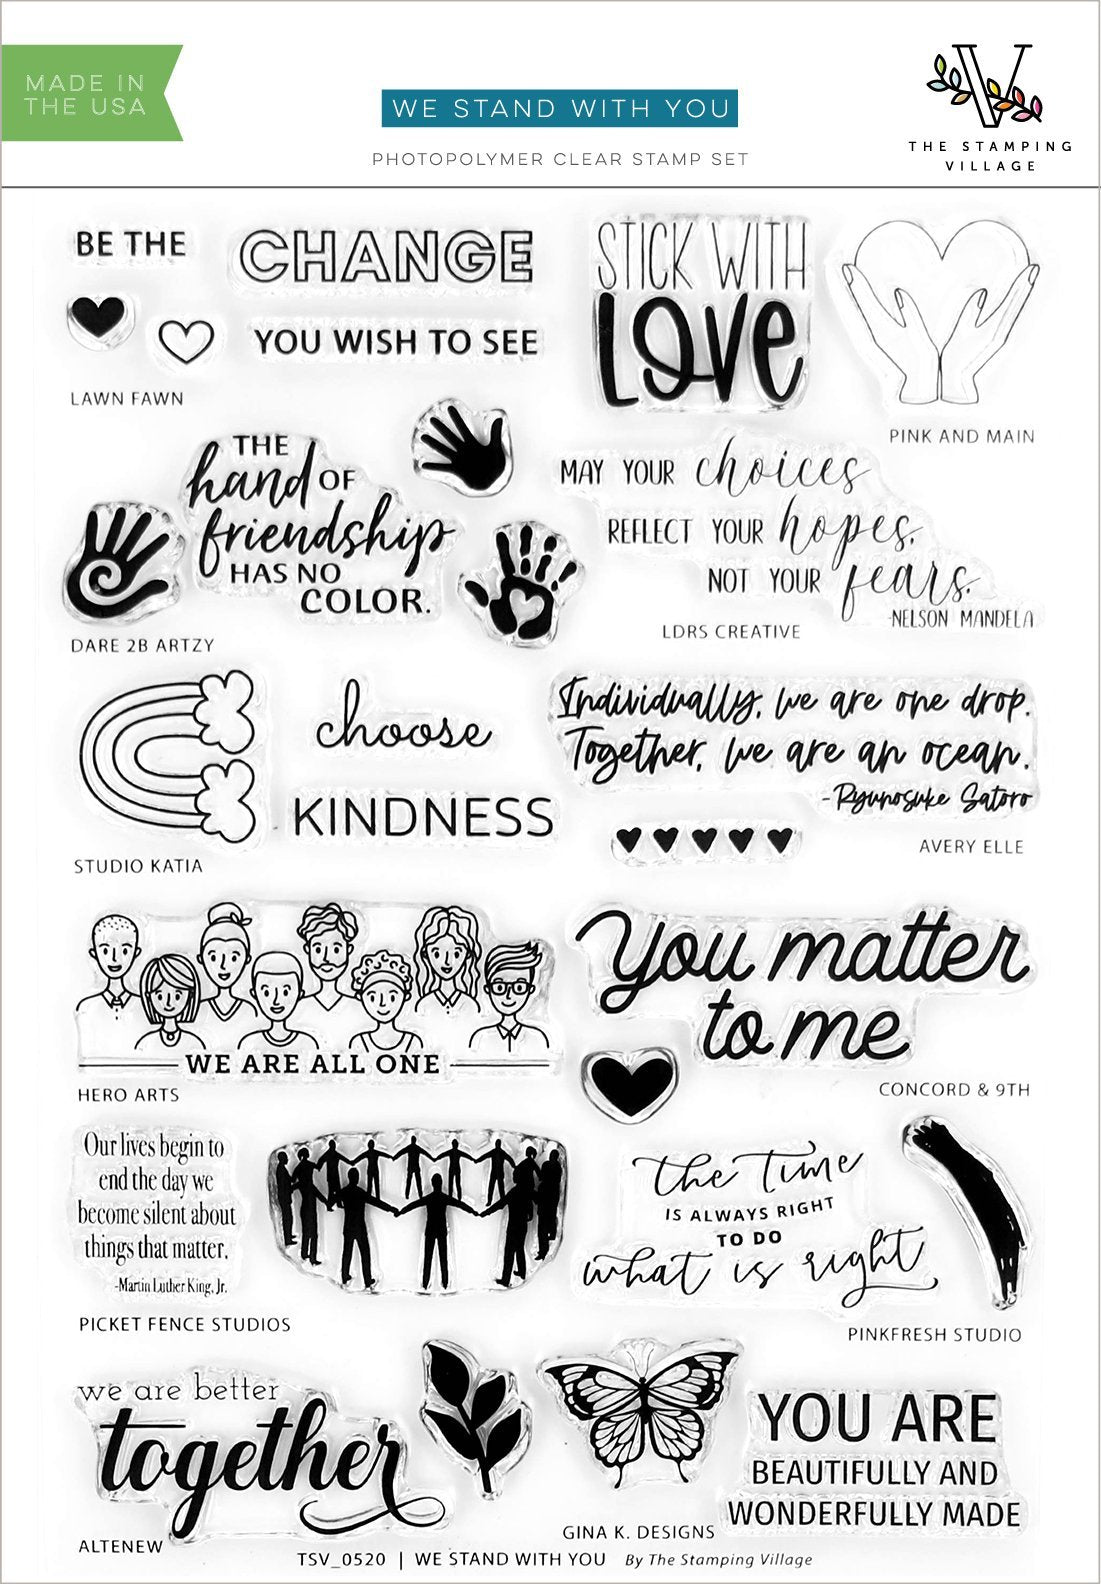 MADE IN
THE USA
WE STAND WITH YOU
PHOTOPOLYMER CLEAR STAMP SET
V
THE STAMPING
VILLAGE
BE THE
CHANGE
YOU WISH TO SEE
LAWN FAWN
STICK WITH
LOVE
PINK AND MAIN
THE
hand OF
friendship
HAS NO
COLOR.
DARE 2B ARTZY
MAY YOUR choices
REFLECT YOUR hopes,
NOT YOUR fears.
-NELSON MANDELA
LDRS CREATIVE
choose
KINDNESS
STUDIO KATIA
Individually, we are one drop.
Together, we are an ocean.
-Ryunosuke Satoro
AVERY ELLE
WE ARE ALL ONE
HERO ARTS
You matter
to me
CONCORD & 9TH
Our lives begin to
end the day we
become silent about
things that matter.
-Martin Luther King, Jr.
PICKET FENCE STUDIOS
the time
IS ALWAYS RIGHT
TO DO
what is right
PINKFRESH STUDIO
we are better
together
ALTENEW
YOU ARE
BEAUTIFULLY AND
WONDERFULLY MADE
GINA K. DESIGNS
TSV_0520 | WE STAND WITH YOU By The Stamping Village